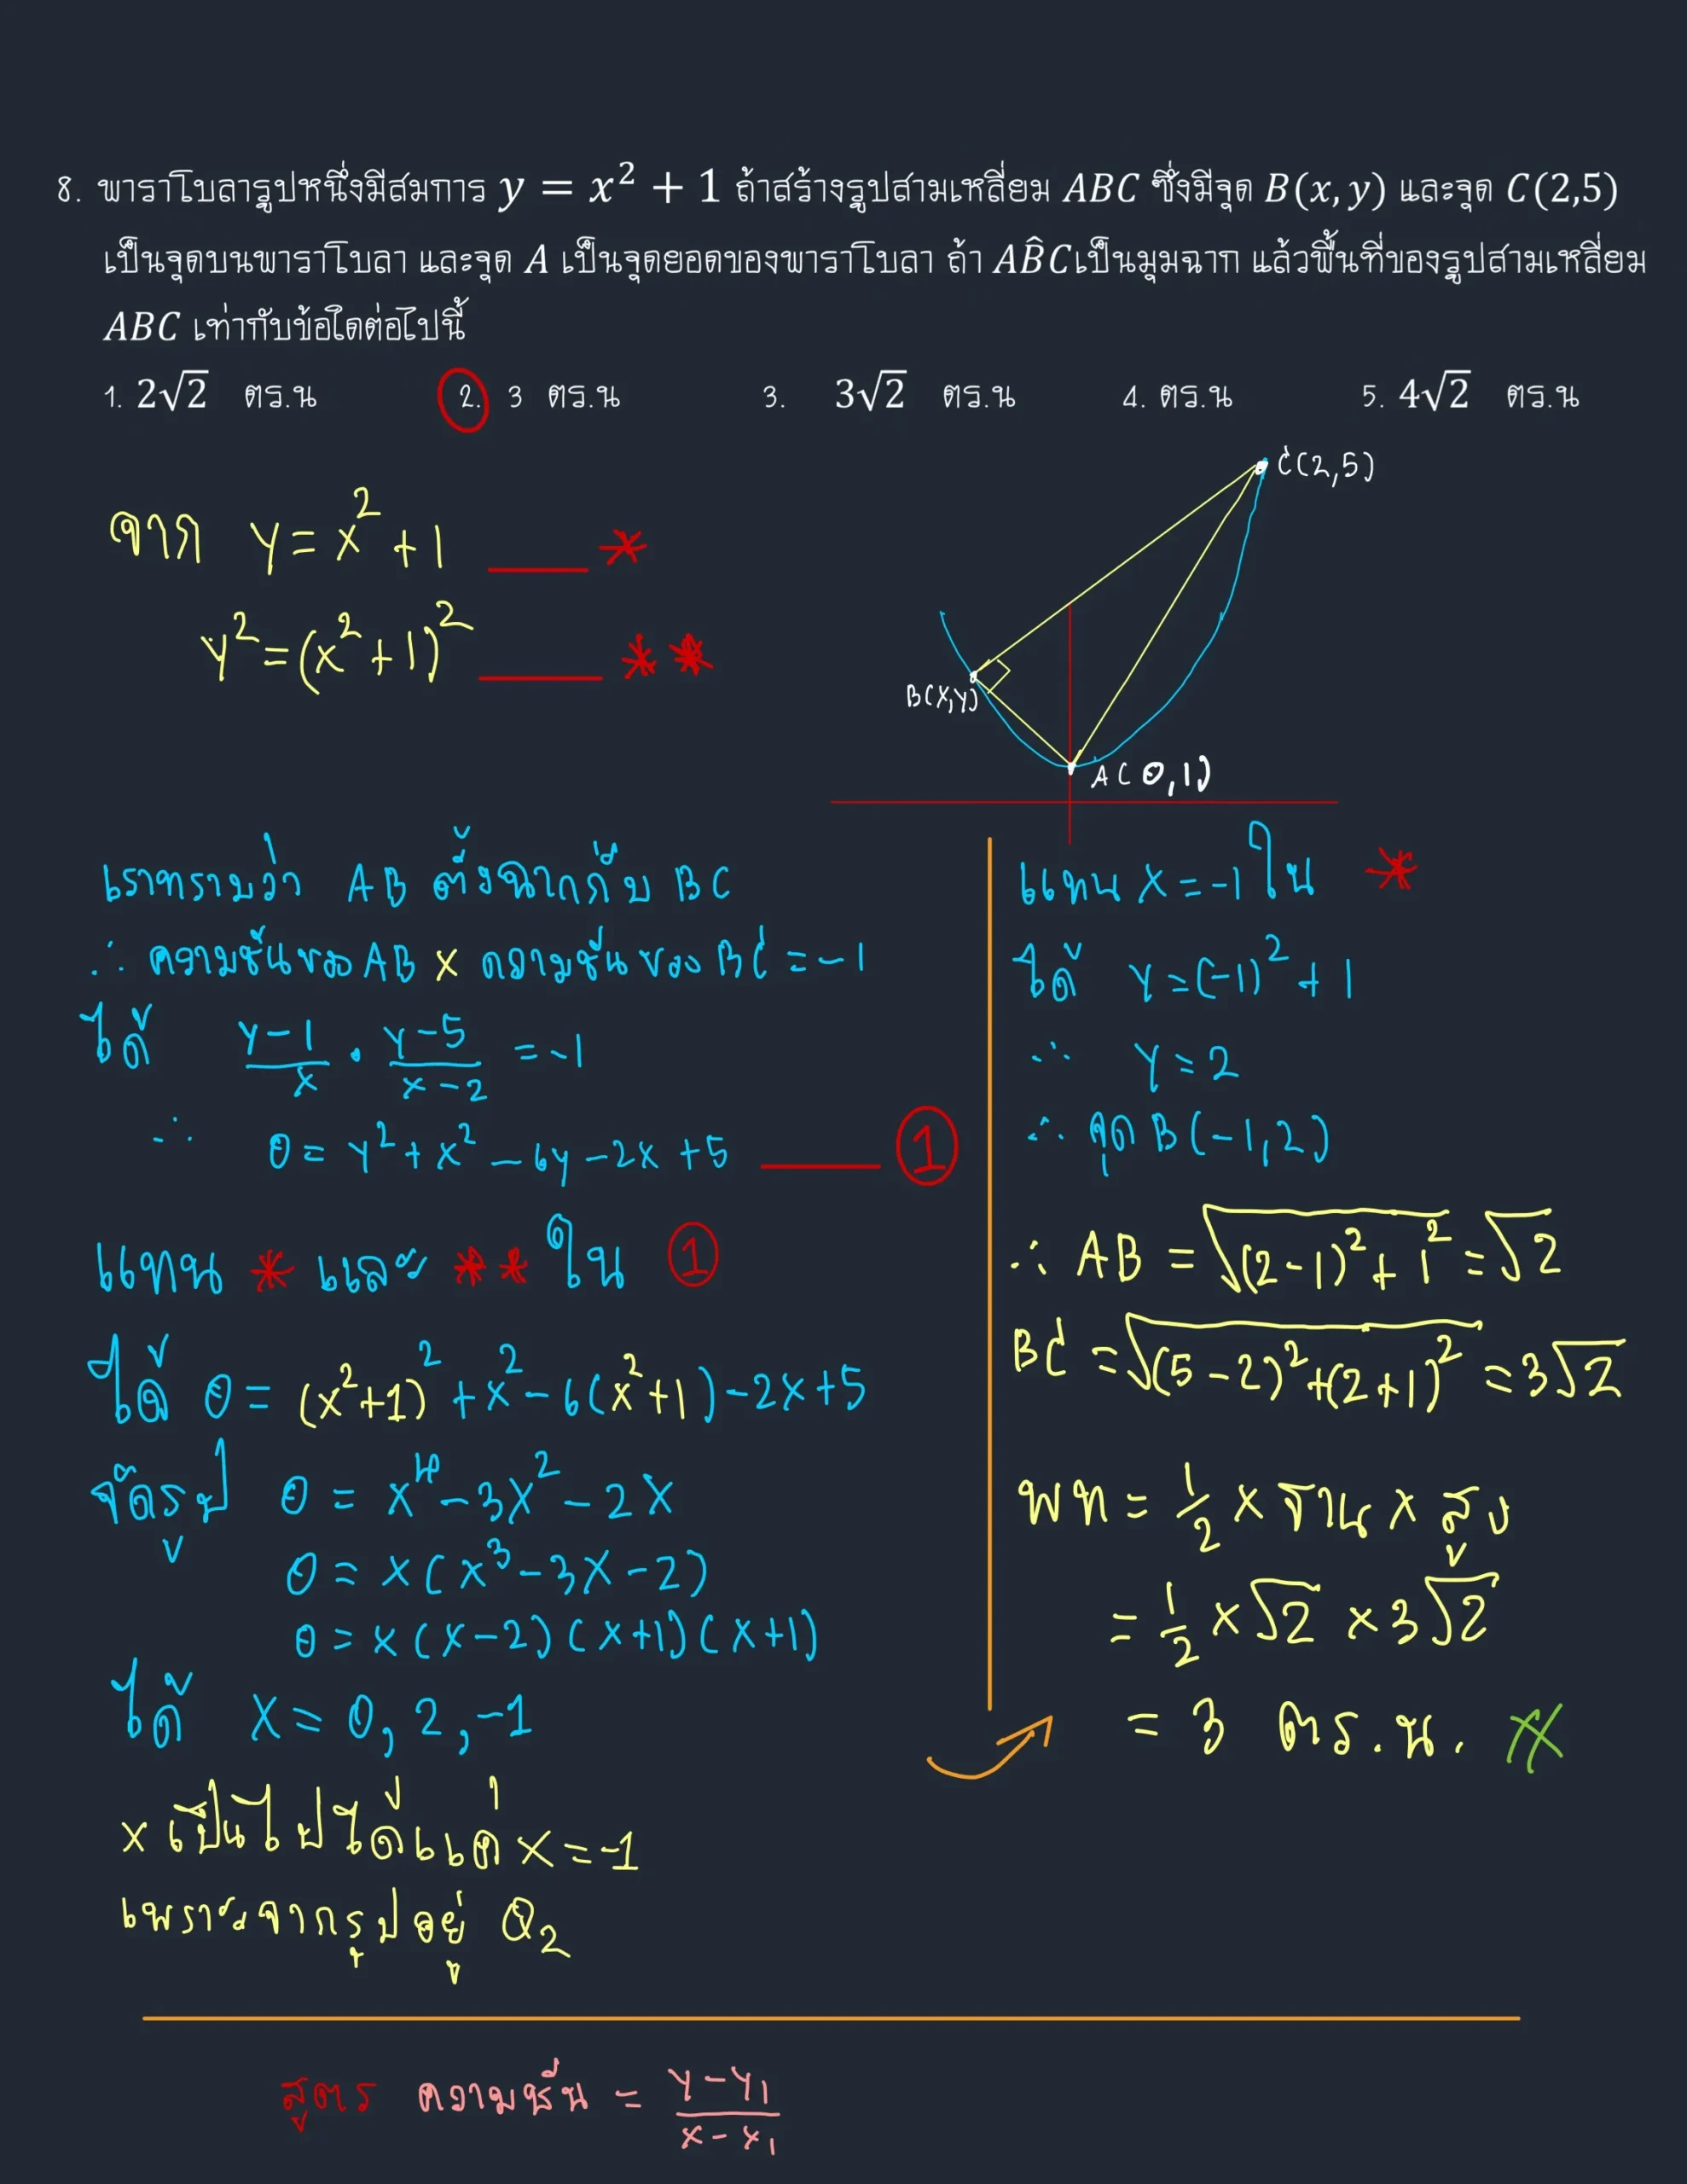 8. พาราโบลารูปหนึ่งมีสมการ y = x² + 1 ถ้าสร้างรูปสามเหลี่ยม ABC ซึ่งมีจุด B(x, y) และจุด C(2,5)
เป็นจุดบนพาราโบลา และจุด A เป็นจุดยอดของพาราโบลา ถ้า AB̂C เป็นมุมฉาก แล้วพื้นที่ของรูปสามเหลี่ยม
ABC เท่ากับข้อใดต่อไปนี้
1. 2√2 ตร.น 2. 3 ตร.น 3. 3√2 ตร.น 4. ตร.น 5. 4√2 ตร.น
C(2,5)
B(x,y)
A(0,1)
จาก y = x² + 1 ____ *
y² = (x² + 1)² ____ **
เราทราบว่า AB ตั้งฉากกับ BC
∴ ความชันของ AB × ความชันของ BC = -1
ได้ (y-1)/x · (y-5)/(x-2) = -1
∴ 0 = y² + x² - 6y - 2x + 5 ____ ①
แทน * และ ** ใน ①
ได้ 0 = (x²+1)² + x² - 6(x²+1) - 2x + 5
จัดรูป 0 = x⁴ - 3x² - 2x
0 = x(x³ - 3x - 2)
0 = x(x-2)(x+1)(x+1)
ได้ x = 0, 2, -1
x เป็นไปได้แค่ x = -1
เพราะจากรูปอยู่ Q₂
แทน x = -1 ใน *
ได้ y = (-1)² + 1
∴ y = 2
∴ จุด B(-1,2)
∴ AB = √((2-1)² + 1²) = √2
BC = √((5-2)² + (2+1)²) = 3√2
พท = 1/2 × ฐาน × สูง
= 1/2 × √2 × 3√2
= 3 ตร.น. #
สูตร ความชัน = (y-y₁)/(x-x₁)